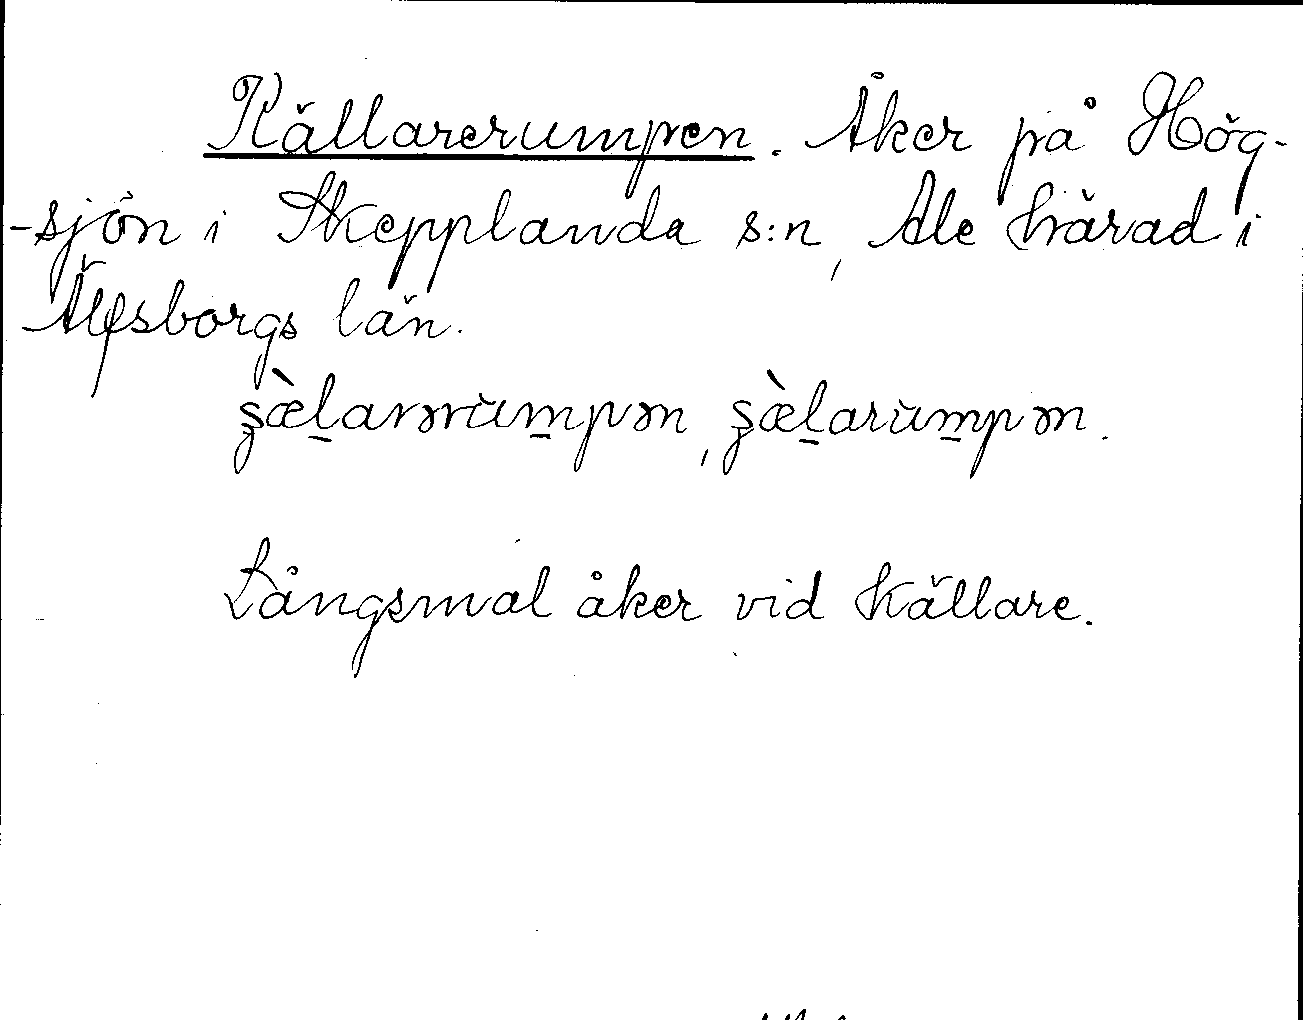 Källarerumpen. Åker på Hög-
-sjön i Skepplanda s:n, Ale härad i
Älfsborgs län.
Långsmal åker vid källare.